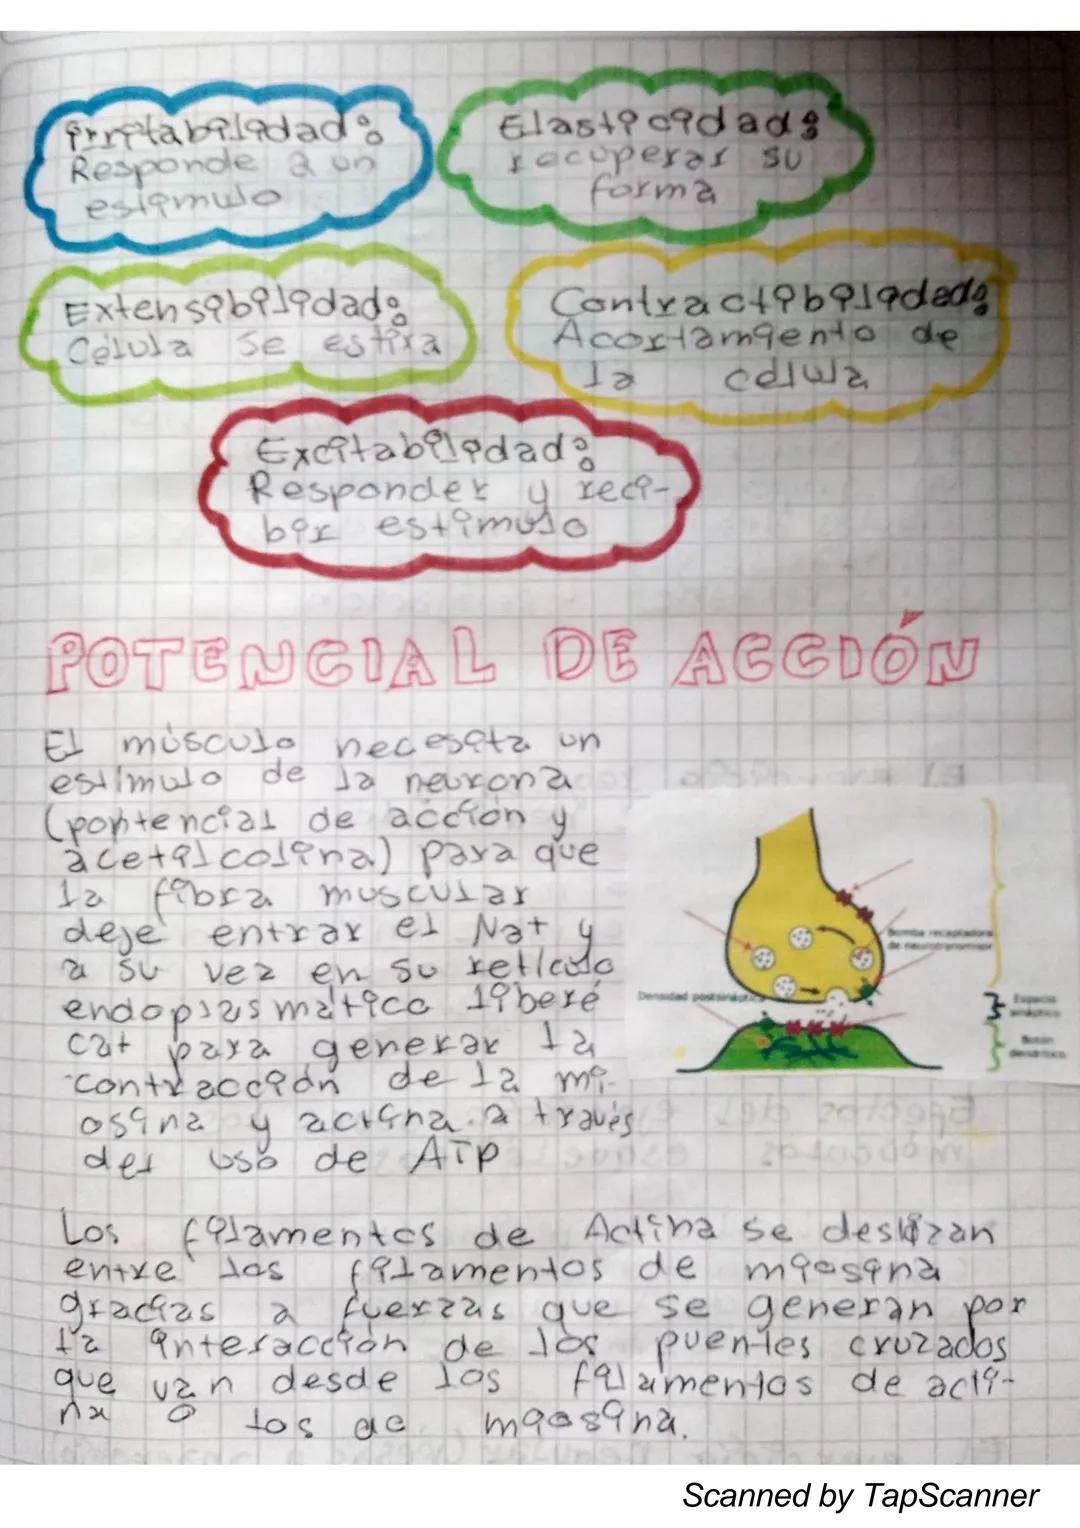 Irritabilidad:
Responde a un
estimulo
Elasticidad:
recuperar su
forma
Extensibilidad:
Célula se estira
Contractibilidad:
Acortamiento de
la célula
Excitabilidad:
Responder y reci-
bir estimulo
POTENCIAL DE ACCIÓN
El músculo necesita un
estímulo de la neurona
(pontencial de acción y
acetilcolina) para que
la fibra muscular
deje entrar el Na+ y
a su vez en su retículo
endoplasmático liberé
Ca+ para generar la
contracción de la mi-
osina y actina a través
del uso de ATP
Bomba recaptadora
de neurotransmisor
Densidad postsináptica
Espacio
sináptico
Botón
dendrítico
Los filamentos de Actina se deslizan
entre los filamentos de miosina
gracias a fuerzas que se generan por
la interacción de los puentes cruzados
que van desde los filamentos de acti-
na o los de miosina.
Scanned by TapScanner